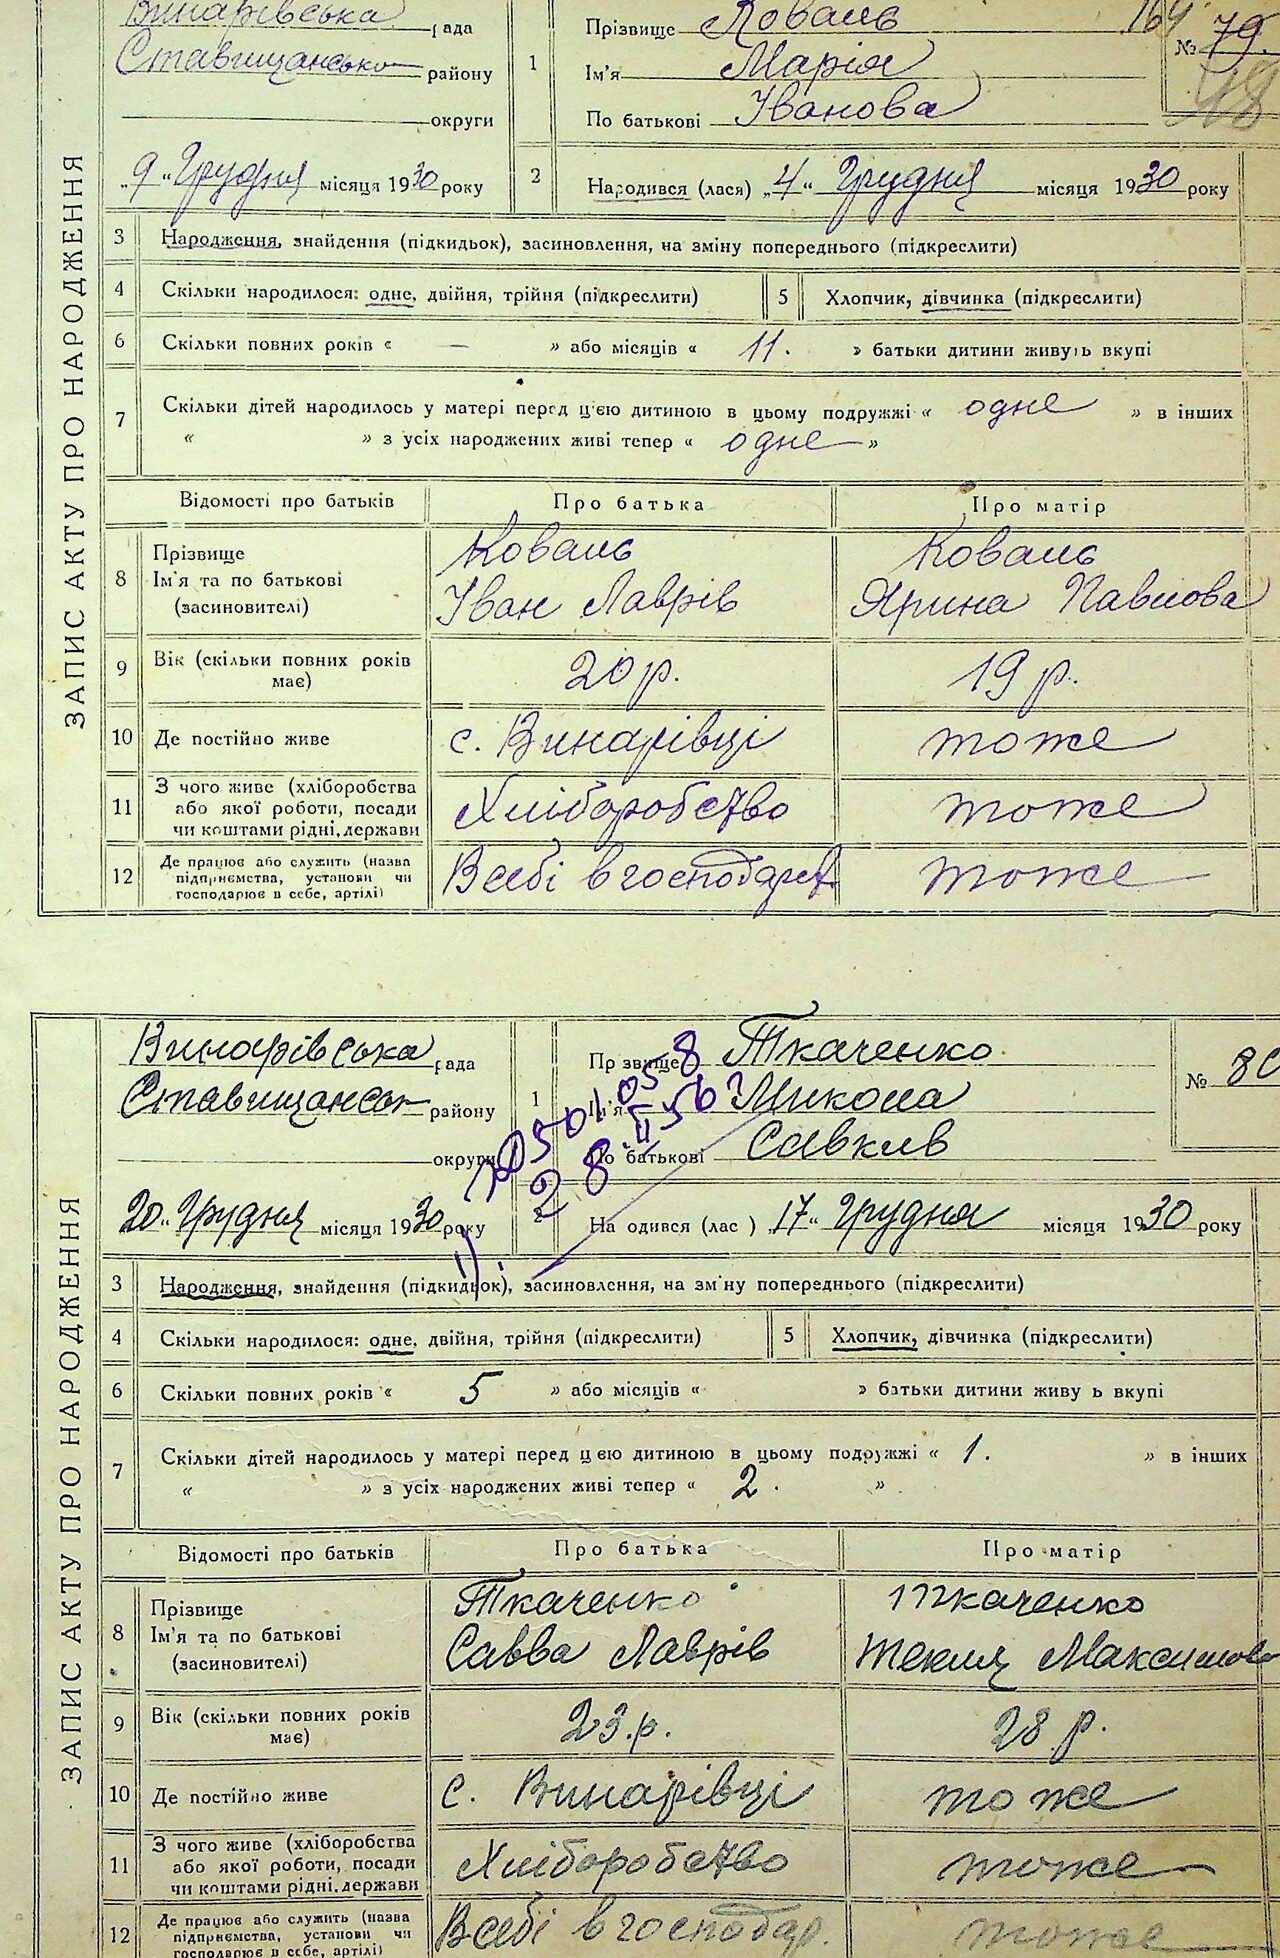 ЗАПИС АКТУ ПРО НАРОДЖЕННЯ
Винарівська рада
Ставищансько району
округи
„9“ Грудня місяця 1930 року
1 Прізвище Коваль
Ім'я Марія
По батькові Іванова
164
№ 79.
48
2 Народився (лася) „4“ Грудня місяця 1930 року
3 Народження, знайдення (підкидьок), засиновлення, на зміну попереднього (підкреслити)
4 Скільки народилося: одне, двійня, трійня (підкреслити) 5 Хлопчик, дівчинка (підкреслити)
6 Скільки повних років « — » або місяців « 11. » батьки дитини живуть вкупі
7 Скільки дітей народилось у матері перед цією дитиною в цьому подружжі « одне » в інших
« » з усіх народжених живі тепер « одне »
Відомості про батьків Про батька Про матір
8 Прізвище Коваль Коваль
Ім'я та по батькові Іван Лаврів Ярина Павлова
(засиновителі)
9 Вік (скільки повних років має) 20 р. 19 р.
10 Де постійно живе с. Винарівці тоже
11 З чого живе (хліборобства
або якої роботи, посади Хліборобство тоже
чи коштами рідні, держави
12 Де працює або служить (назва
підприємства, установи чи В себі в господарст. тоже
господарює в себе, артілі)
ЗАПИС АКТУ ПРО НАРОДЖЕННЯ
Винарівська рада
Ставищанськ району
округи
20 „ Грудня місяця 1930 року
1 Прзвище Ткаченко
Ім'я Микола
По батькові Савків
№ 80
28 II 56
На одився (лас ) „17“ Грудня місяця 1930 року
3 Народження, знайдення (підкидьок), засиновлення, на зм'ну попереднього (підкреслити)
4 Скільки народилося: одне, двійня, трійня (підкреслити) 5 Хлопчик, дівчинка (підкреслити)
6 Скільки повних років « 5 » або місяців « » батьки дитини живу ь вкупі
7 Скільки дітей народилось у матері перед цією дитиною в цьому подружжі « 1. » в інших
« » з усіх народжених живі тепер « 2. »
Відомості про батьків Про батька Про матір
8 Прізвище Ткаченко Ткаченко
Ім'я та по батькові Савва Лаврів Текля Максимова
(засиновителі)
9 Вік (скільки повних років має) 23.р. 28 р.
10 Де постійно живе с. Винарівці тоже
11 З чого живе (хліборобства
або якої роботи, посади Хліборобство тоже
чи коштами рідні, держави
12 Де працює або служить (назва
підприємства, установи чи В себі в господар. тоже
господарює в себе, артілі)